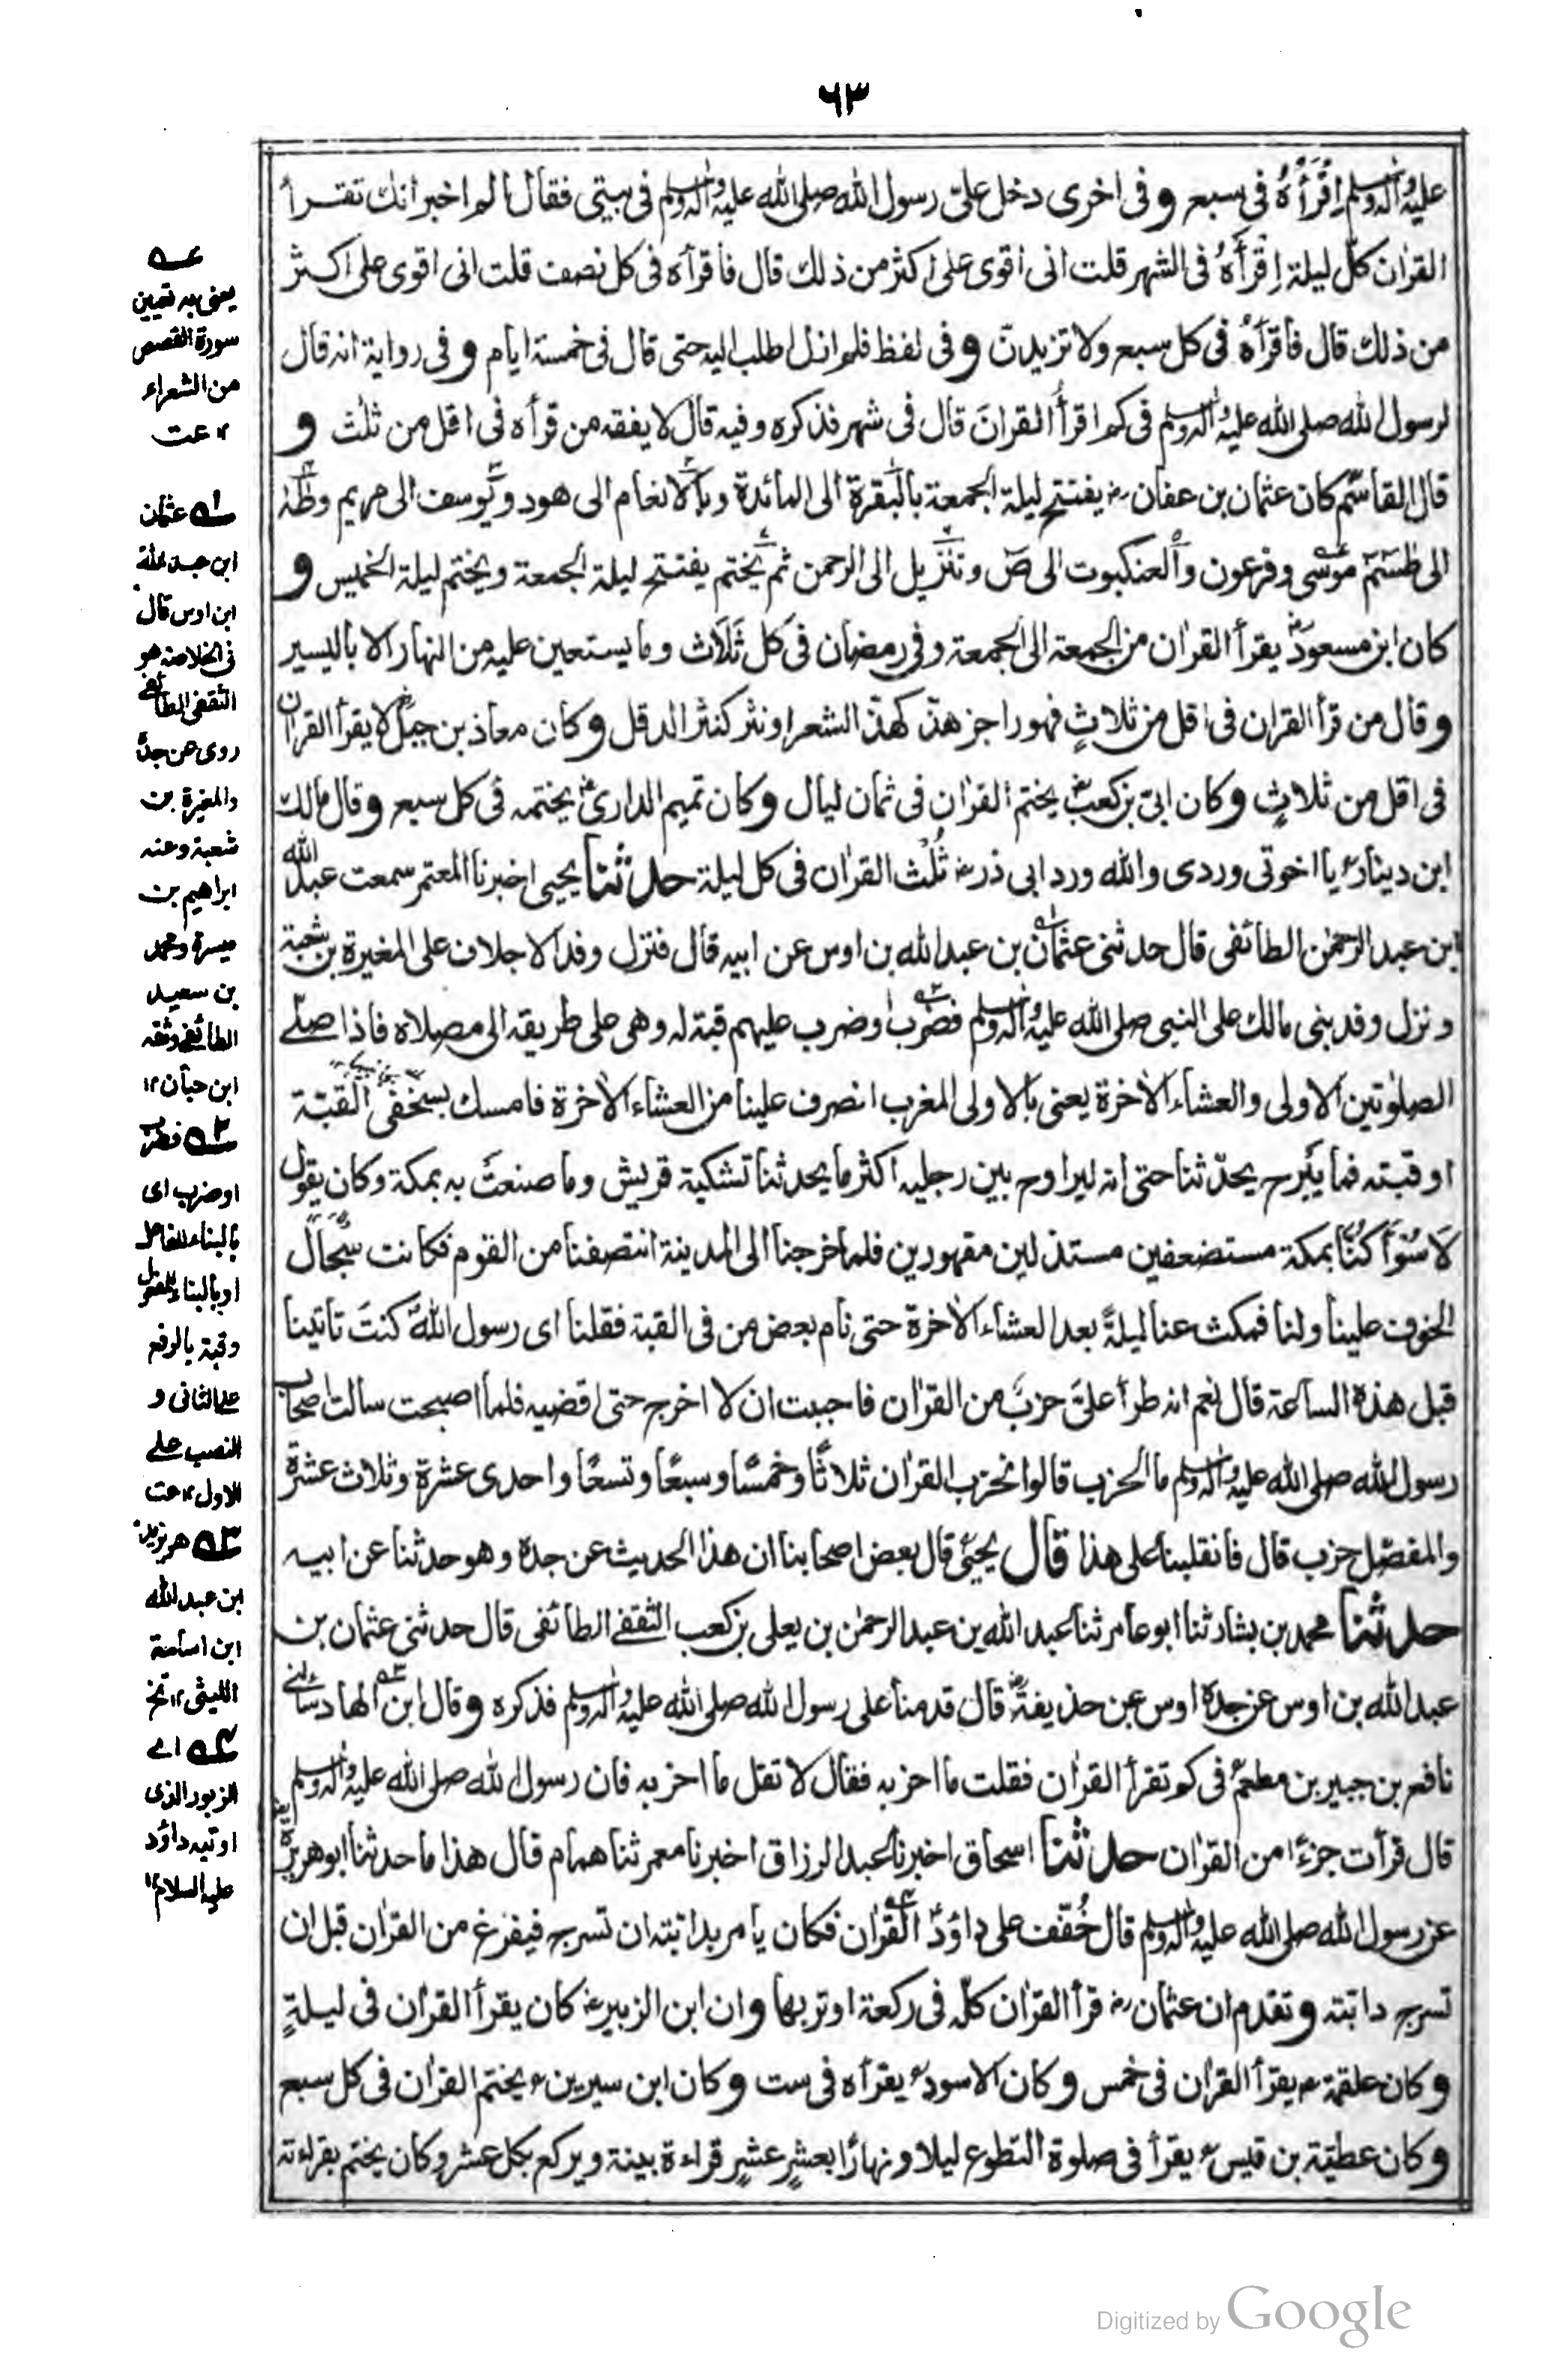 ٦٣
عليه وآله وسلم اِقْرَأْهُ فى سبع وفى اخرى دخل علىّ رسول الله صلى الله عليه وآله وسلم فى بيتى فقال الم اخبر انك تقرأ
القرآن كلّ ليلة اِقْرَأْهُ فى الشهر قلت انى اقوى على اكثر من ذلك قال فاقرأه فى كل نصف قلت انى اقوى على اكثر
من ذلك قال فاقرأه فى كل سبع ولا تزيدن وفى لفظ فلم ازل اطلب اليه حتى قال فى خمسة ايام وفى رواية انه قال
لرسول الله صلى الله عليه وآله وسلم فى كم اقرأ القرانَ قال فى شهر فذكره وفيه قال لا يفقه من قرأه فى اقل من ثلٰث و
قال القاسم كان عثمان بن عفان رض يفتتح ليلة الجمعة بالبقرة الى المائدة وبالانعام الى هود ويوسف الى مريم وطٰهٰ
الى طٰسٓمٓ موسى وفرعون والعنكبوت الى صٓ وتنزيل الى الرحمن ثم يختم يفتتح ليلة الجمعة ويختم ليلة الخميس و
كان ابن مسعود رض يقرأ القرٰان من الجمعة الى الجمعة وفى رمضان فى كل ثَلَاث وما يستعين عليه من النهار الا باليسير
وقال من قرأ القران فى اقل من ثلاثٍ فهو راجز هذّ كهذّ الشعر او نثر كنثر الدقل وكان معاذ بن جبل رض لا يقرأ القران
فى اقل من ثلاثٍ وكان ابىّ بن كعب رض يختم القرٰان فى ثمان ليال وكان تميم الدارى رض يختمه فى كل سبع وقال مالك
ابن دينار يا اخوتى وردى والله ورد ابى ذر رض ثُلُث القرٰان فى كل ليلة حدثنا يحيى اخبرنا المعتمر سمعت عبد الله
ابن عبد الرحمٰن الطائفى قال حدثنى عثمان بن عبد الله بن اوس عن ابيه قال فنزل وفد الاحلاف على المغيرة بن شعبة
ونزل وفد بنى مالك على النبى صلى الله عليه وآله وسلم فضرب او ضرب عليهم قبة له وهى على طريقه الى مصلاه فاذا صلى
الصلوٰتين الاولى والعشاء الاٰخرة يعنى بالاولى المغرب انصرف علينا من العشاء الاٰخرة فامسك بسجفى القبّة
او قبته فما يبرح يحدّثنا حتى انه ليراوح بين رجليه اكثر ما يحدثنا تشكية قريش وما صنعت به بمكة وكان يقول
لا سَوَاءَ كُنَّا بمكة مستضعفين مستذلين مقهورين فلما خرجنا الى المدينة انتصفنا من القوم فكانت سجال
الخوف علينا ولنا فمكث عنا ليلةً بعد العشاء الاٰخرة حتى نام بعض من فى القبة فقلنا اى رسول الله كنتَ تأتينا
قبل هذه الساعة قال نعم انه طرأ علىّ حزب من القرٰان فاحببت ان لا اخرج حتى اقضيه فلما اصبحت سالت اصحاب
رسول الله صلى الله عليه وآله وسلم ما الحزب قالوا نحزب القرٰان ثلاثًا وخمسًا وسبعًا وتسعًا واحدى عشرة وثلاث عشرة
والمفصّل حزب قال فانقلبنا على هذا قال يحيى قال بعض اصحابنا ان هذا الحديث عن جده وهو حدثنا عن ابيه
حدثنا محمد بن بشار ثنا ابو عامر ثنا عبد الله بن عبد الرحمٰن بن يعلى بن كعب الثقفى الطائفى قال حدثنى عثمان بن
عبد الله بن اوس عن جده اوس عن حذيفة رض قال قدمنا على رسول الله صلى الله عليه وآله وسلم فذكره وقال ابن الهاد سألنى
نافع بن جبير بن مطعم فى كم تقرأ القرٰان فقلت ما احزبه فقال لا تقل ما احزبه فان رسول الله صلى الله عليه وآله وسلم
قال قرأت جزءًا من القرٰان حدثنا اسحاق اخبرنا عبد الرزاق اخبرنا معمر ثنا همام قال هذا ما حدثنا ابو هريرة
عن رسول الله صلى الله عليه وآله وسلم قال خُفّف على داؤدؑ القرٰان فكان يأمر بدابته ان تسرج فيفرغ من القرٰان قبل ان
تسرج دابته وتقدم ان عثمان رض قرأ القرٰان كلّه فى ركعة اوتر بها وان ابن الزبير رض كان يقرأ القرٰان فى ليلةٍ
وكان علقمة يقرأ القرٰان فى خمس وكان الاسود يقرأه فى ست وكان ابن سيرين يختم القرٰان فى كل سبع
وكان عطيّة بن قيس يقرأ فى صلوة التطوع ليلا ونهارًا بعشرٍ عشرٍ قراءة بينة ويركع بكل عشر وكان يختم بقراءته
يعنى به تعيين
سورة القصص
من الشعراء
١٢ عت
١ عثمان
ابن عبد الله
ابن اوس قال
فى الخلاصة هو
الثقفى الطائفى
روى عن جدّه
والمغيرة بن
شعبة وعنه
ابراهيم بن
ميسرة ومحمد
بن سعيد
الطائفى وثقه
ابن حبان ١٢
٢ فضرب
او ضرب اى
بالبناء للفاعل
او بالبناء للمفعول
وقبة بالرفع
على الثانى و
النصب على
الاول ١٢ عت
٣ هو يزيد
ابن عبد الله
ابن اسامة
الليثى ١٢ تخ
٤ اے
الزبور الذى
اوتيه داؤد
عليه السلام ١٢
Digitized by Google